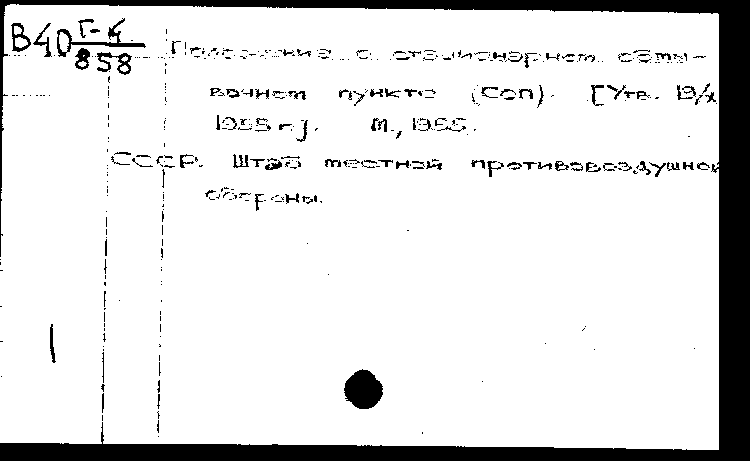 В40 Г-4
858
Положение о стационарном обмы-
вочном пункте (Соп). [Утв. 19/X
1955 г.]. М., 1955.
СССР. Штаб местной противовоздушной
обороны.
1